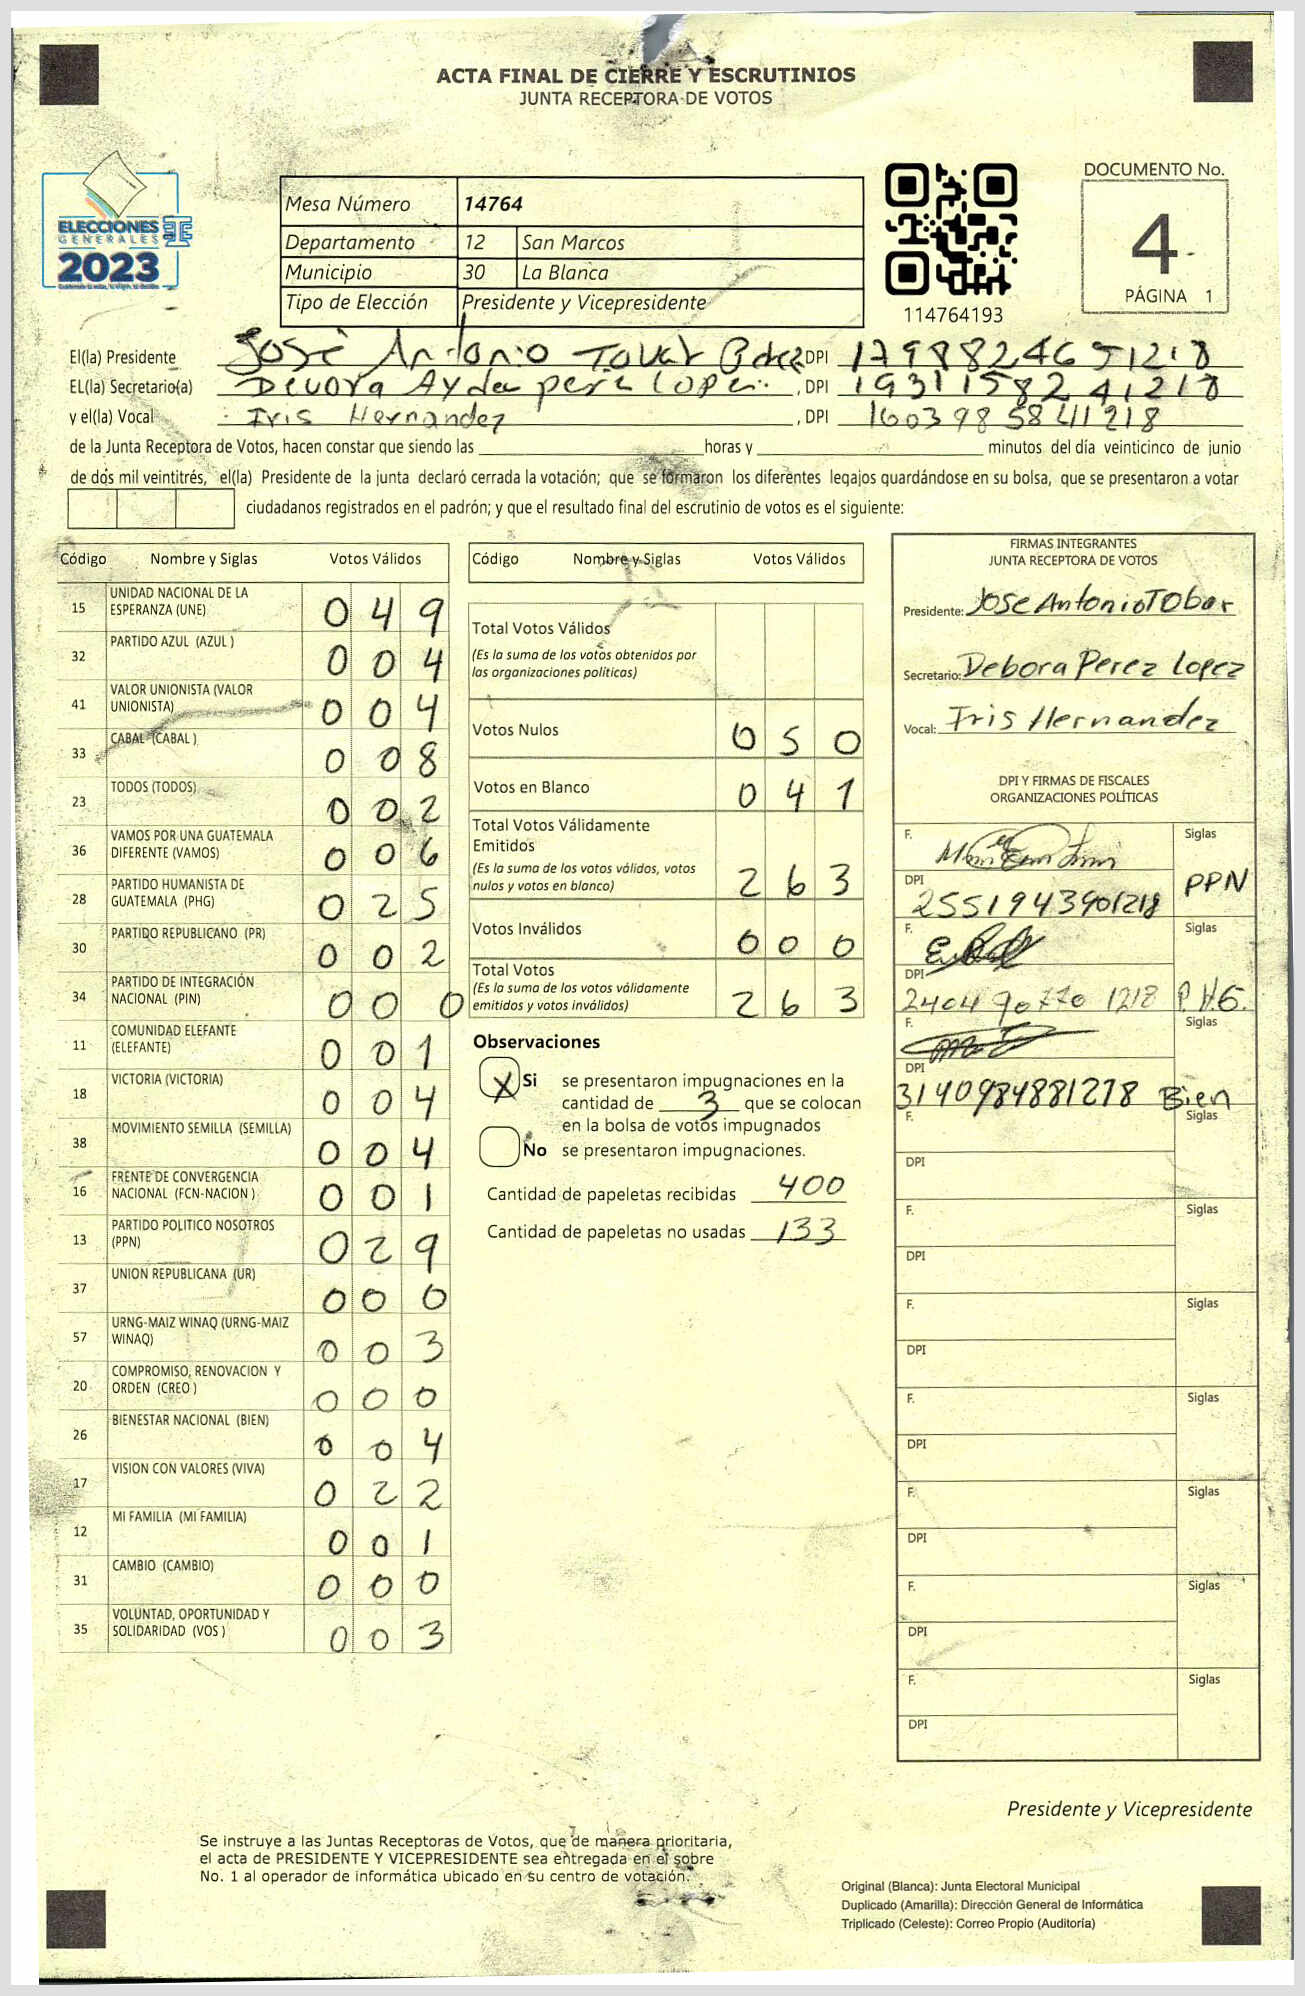 ACTA FINAL DE CIERRE Y ESCRUTINIOS
JUNTA RECEPTORA DE VOTOS
ELECCIONES
GENERALES
2023
Mesa Número 14764
Departamento 12 San Marcos
Municipio 30 La Blanca
Tipo de Elección Presidente y Vicepresidente
114764193
DOCUMENTO No.
4
PÁGINA 1
El(la) Presidente José Antonio Tovar , DPI
EL(la) Secretario(a) Devora Ayda , DPI 1931158241218
y el(la) Vocal Iris Hernandez , DPI 1603985841218
de la Junta Receptora de Votos, hacen constar que siendo las horas y minutos del día veinticinco de junio
de dos mil veintitrés, el(la) Presidente de la junta declaró cerrada la votación; que se formaron los diferentes legajos quardándose en su bolsa, que se presentaron a votar
ciudadanos registrados en el padrón; y que el resultado final del escrutinio de votos es el siguiente:
Código Nombre y Siglas Votos Válidos
15 UNIDAD NACIONAL DE LA ESPERANZA (UNE) 0 4 9
32 PARTIDO AZUL (AZUL ) 0 0 4
41 VALOR UNIONISTA (VALOR UNIONISTA) 0 0 4
33 CABAL (CABAL ) 0 0 8
23 TODOS (TODOS) 0 0 2
36 VAMOS POR UNA GUATEMALA DIFERENTE (VAMOS) 0 0 6
28 PARTIDO HUMANISTA DE GUATEMALA (PHG) 0 2 5
30 PARTIDO REPUBLICANO (PR) 0 0 2
34 PARTIDO DE INTEGRACIÓN NACIONAL (PIN) 0 0 0
11 COMUNIDAD ELEFANTE (ELEFANTE) 0 0 1
18 VICTORIA (VICTORIA) 0 0 4
38 MOVIMIENTO SEMILLA (SEMILLA) 0 0 4
16 FRENTE DE CONVERGENCIA NACIONAL (FCN-NACION ) 0 0 1
13 PARTIDO POLITICO NOSOTROS (PPN) 0 2 9
37 UNION REPUBLICANA (UR) 0 0 0
57 URNG-MAIZ WINAQ (URNG-MAIZ WINAQ) 0 0 3
20 COMPROMISO, RENOVACION Y ORDEN (CREO ) 0 0 0
26 BIENESTAR NACIONAL (BIEN) 0 0 4
17 VISION CON VALORES (VIVA) 0 2 2
12 MI FAMILIA (MI FAMILIA) 0 0 1
31 CAMBIO (CAMBIO) 0 0 0
35 VOLUNTAD, OPORTUNIDAD Y SOLIDARIDAD (VOS ) 0 0 3
Código Nombre y Siglas Votos Válidos
Total Votos Válidos
(Es la suma de los votos obtenidos por
las organizaciones políticas)
Votos Nulos 0 5 0
Votos en Blanco 0 4 1
Total Votos Válidamente
Emitidos
(Es la suma de los votos válidos, votos
nulos y votos en blanco) 2 6 3
Votos Inválidos 0 0 0
Total Votos
(Es la suma de los votos válidamente
emitidos y votos inválidos) 2 6 3
Observaciones
X Si se presentaron impugnaciones en la
cantidad de 3 que se colocan
en la bolsa de votos impugnados
No se presentaron impugnaciones.
Cantidad de papeletas recibidas 400
Cantidad de papeletas no usadas 133
FIRMAS INTEGRANTES
JUNTA RECEPTORA DE VOTOS
Presidente: Jose Antonio TObar
Secretario: Debora Perez Lopez
Vocal: Iris Hernandez
DPI Y FIRMAS DE FISCALES
ORGANIZACIONES POLÍTICAS
F. Siglas
DPI 2551943901218 PPN
F. Siglas
DPI 2404 90770 1218 P.H.G.
F. Siglas
DPI Bien
F. Siglas
DPI
F. Siglas
DPI
F. Siglas
DPI
F. Siglas
DPI
F. Siglas
DPI
F. Siglas
DPI
F. Siglas
DPI
Presidente y Vicepresidente
Se instruye a las Juntas Receptoras de Votos, que de manera prioritaria,
el acta de PRESIDENTE Y VICEPRESIDENTE sea entregada en el sobre
No. 1 al operador de informática ubicado en su centro de votación.
Original (Blanca): Junta Electoral Municipal
Duplicado (Amarilla): Dirección General de Informática
Triplicado (Celeste): Correo Propio (Auditoría)